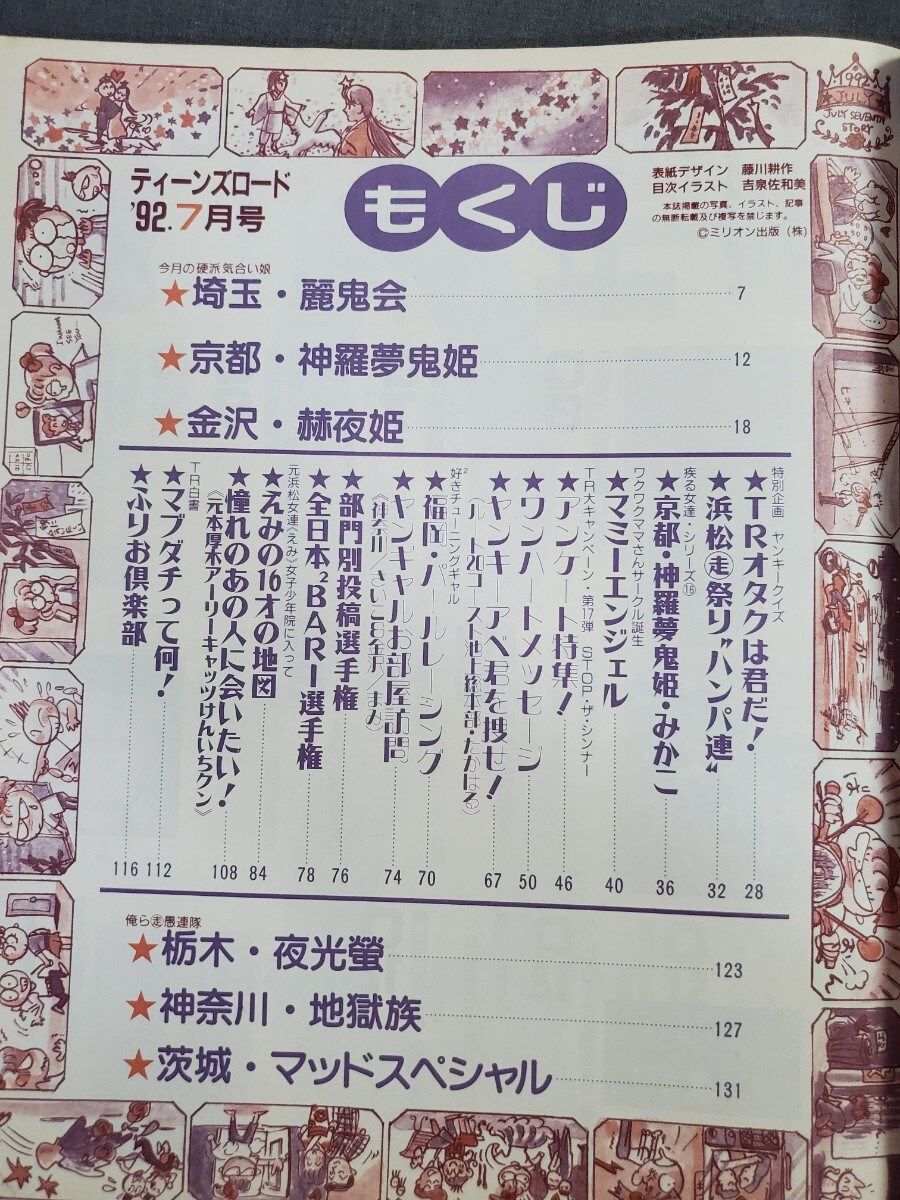 1992
JULY
JULY SEVENTH
STORY
ティーンズロード
'92.7月号
もくじ
表紙デザイン 藤川耕作
目次イラスト 吉泉佐和美
本誌掲載の写真、イラスト、記事
の無断転載及び複写を禁じます。
©ミリオン出版(株)
今月の硬派気合い娘
★埼玉・麗鬼会 7
★京都・神羅夢鬼姫 12
★金沢・赫夜姫 18
特別企画 ヤンキークイズ
★TRオタクは君だ! 28
★浜松㊋祭り"ハンパ連" 32
疾る女達・シリーズ⑯
★京都・神羅夢鬼姫・みかこ 36
ワクワクママさんサークル誕生
★マミーエンジェル 40
TR大キャンペーン・第17弾 STOP・ザ・シンナー
★アンケート特集! 46
★ワンハートメッセージ 50
★ヤンキーアベ君を捜せ! 67
(ルート20コースト池上総本部・たかはる)
好き²チューニングギャル
★福岡・パールレーシング 70
★ヤンギャルお部屋訪問 74
《神奈川/さいこ&金沢/まみ》
★部門別投稿選手権 76
★全日本²BARI選手権 78
元浜松女連《えみ》女子少年院に入って
★えみの16才の地図 84
★憧れのあの人に会いたい! 108
《元本厚木アーリーキャッツけんいちクン》
TR白書
★マブダチって何! 112
★ふりお倶楽部 116
俺ら走愚連隊
★栃木・夜光螢 123
★神奈川・地獄族 127
★茨城・マッドスペシャル 131